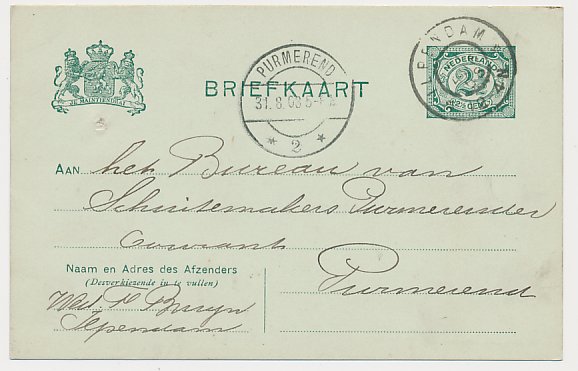 JE MAINTIENDRAI
BRIEFKAART
PURMEREND
31.8.08 5-6N
2
NEDERLAND
2½
2½ CENT
AAN het Bureau van
Schuitemakers Purmerender
Courant
Purmerend
Naam en Adres des Afzenders
(Desverkiezende in te vullen)
Wed. P Bruyn
Ilpendam